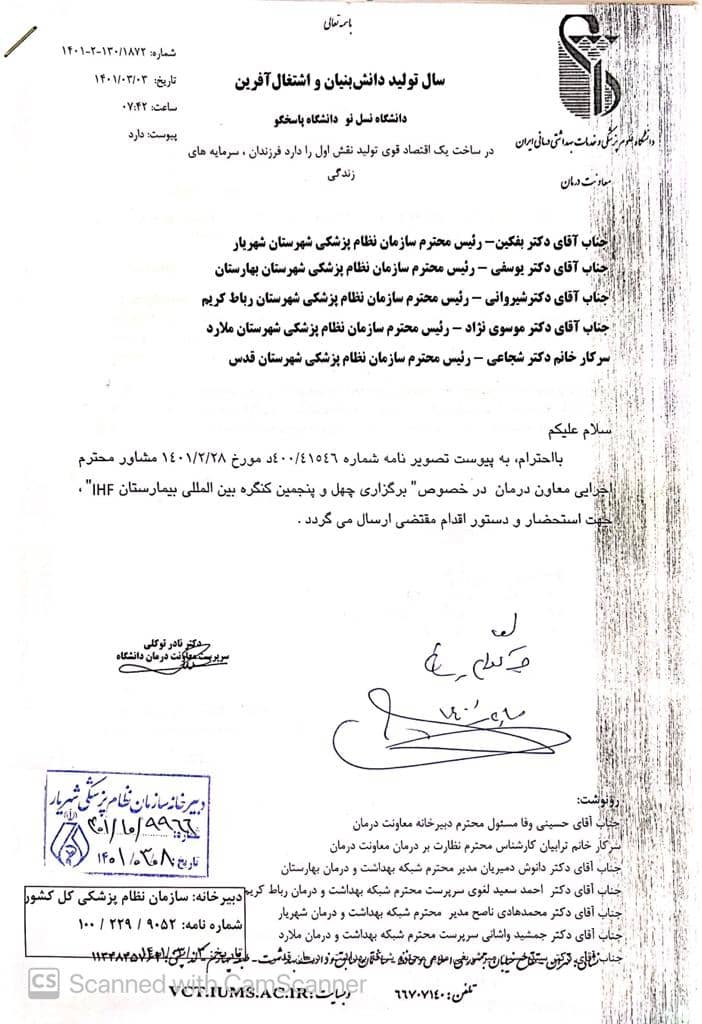 باسمه تعالی
شماره: ۱۴۰۱-۲-۱۳۰/۱۸۷۲
تاریخ: ۱۴۰۱/۰۳/۰۳
ساعت: ۰۷:۴۲
پیوست: دارد
سال تولید دانش‌بنیان و اشتغال‌آفرین
دانشگاه نسل نو دانشگاه پاسخگو
در ساخت یک اقتصاد قوی تولید نقش اول را دارد فرزندان ، سرمایه های
زندگی
دانشگاه علوم پزشکی و خدمات بهداشتی درمانی ایران
معاونت درمان
جناب آقای دکتر یفکین– رئیس محترم سازمان نظام پزشکی شهرستان شهریار
جناب آقای دکتر یوسفی – رئیس محترم سازمان نظام پزشکی شهرستان بهارستان
جناب آقای دکترشیروانی – رئیس محترم سازمان نظام پزشکی شهرستان رباط کریم
جناب آقای دکتر موسوی نژاد – رئیس محترم سازمان نظام پزشکی شهرستان ملارد
سرکار خانم دکتر شجاعی – رئیس محترم سازمان نظام پزشکی شهرستان قدس
سلام علیکم
بااحترام، به پیوست تصویر نامه شماره ۴۰۰/۴۱۵۴۶د مورخ ۱۴۰۱/۲/۲۸ مشاور محترم
اجرایی معاون درمان در خصوص" برگزاری چهل و پنجمین کنگره بین المللی بیمارستان IHF" ،
جهت استحضار و دستور اقدام مقتضی ارسال می گردد .
دکتر نادر توکلی
سرپرست معاونت درمان دانشگاه
دبیرخانه سازمان نظام پزشکی شهریار
شماره:
تاریخ: ۱۴۰۱/۰۳/۰۸
رونوشت:
جناب آقای حسینی وفا مسئول محترم دبیرخانه معاونت درمان
سرکار خانم ترابیان کارشناس محترم نظارت بر درمان معاونت درمان
جناب آقای دکتر دانوش دمیریان مدیر محترم شبکه بهداشت و درمان بهارستان
جناب آقای دکتر احمد سعید لغوی سرپرست محترم شبکه بهداشت و درمان رباط کریم
جناب آقای دکتر محمدهادی ناصح مدیر محترم شبکه بهداشت و درمان شهریار
جناب آقای دکتر جمشید واشانی سرپرست محترم شبکه بهداشت و درمان ملارد
جناب آقای دکتر
دبیرخانه: سازمان نظام پزشکی کل کشور
شماره نامه: ۹۰۵۲ / ۲۲۹ / ۱۰۰
تاریخ: ۱۴۰۱/۰۳/۰۳
تلفن: ۶۶۷۰۷۱۴۰ وبسایت: VCT.IUMS.AC.IR
CS Scanned with CamScanner